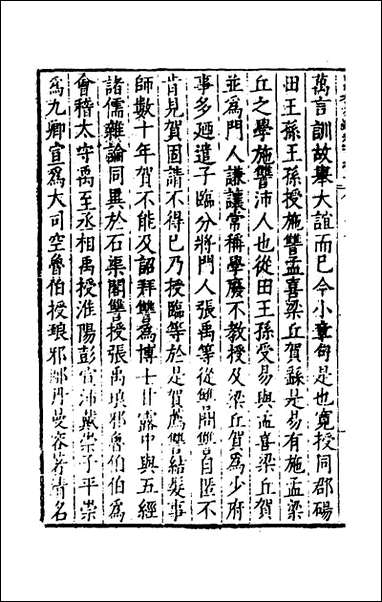 萬言訓故舉大誼而已今小章句是也寬授同郡碭
田王孫王孫授施讐孟喜梁丘賀繇是易有施孟梁
丘之學施讐沛人也從田王孫受易與孟喜梁丘賀
並為門人謙讓常稱學廢不教授及梁丘賀為少府
事多廼遣子臨分將門人張禹等從讐問讐自匿不
肯見賀固請不得已乃授臨等於是賀薦讐結髮事
師數十年賀不能及詔拜讐為博士甘露中與五經
諸儒雜論同異於石渠閣讐授張禹琅邪魯伯伯為
會稽太守禹至丞相禹授淮陽彭宣沛戴崇子平崇
為九卿宣為大司空魯伯授琅邪邴丹曼容著清名